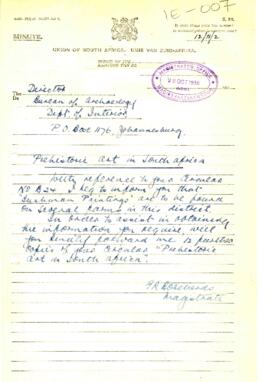 1E-007
MINUTE.
12/11/2
UNION OF SOUTH AFRICA. UNIE VAN ZUID-AFRIKA.
Director
The
Bureau of Archaeology
Dept. of Interior
P.O. Box 1176, Johannesburg
Prehistoric art in South Africa
With reference to your Circular
No B24 I beg to inform you that
"Bushman Paintings" are to be found
on several farms in this district.
In order to assist in obtaining
the information you require, will
you kindly forward me 12 further
copies of your Circular "Prehistoric
art in South Africa".
Magistrate